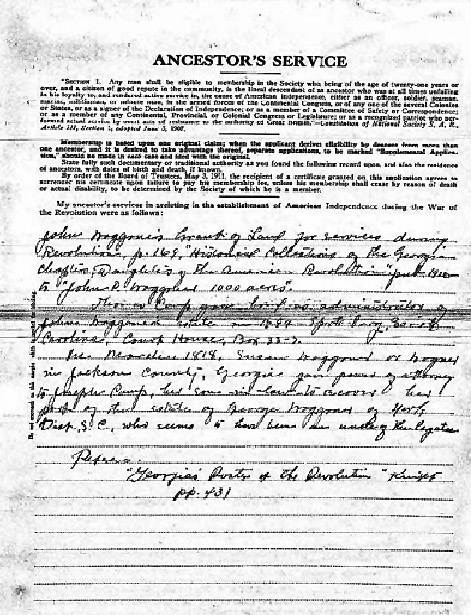 ANCESTOR'S SERVICE
"SECTION 1. Any man shall be eligible to membership in the Society who being of the age of twenty-one years or
over, and a citizen of good repute in the community, is the lineal descendant of an ancestor who was at all times unfailing
in his loyalty to, and rendered active service in, the cause of American Independence, either as an officer, soldier, seaman,
marine, militiaman, or minute man, in the armed forces of the Continental Congress, or of any one of the several Colonies
or States, or as a signer of the Declaration of Independence; or as a member of a Committee of Safety or Correspondence;
or as a member of any Continental, Provincial, or Colonial Congress or Legislature; or as a recognized patriot who per-
formed actual service by overt acts of resistance to the authority of Great Britain."—Constitution of National Society S. A. R.,
Article III, Section 1,
Membership is based upon one original claim; when the applicant derives eligibility by descent from more than
one ancestor, and it is desired to take advantage thereof, separate applications, to be marked "Supplemental Applica-
tion," should be made in each case and filed with the original.
State fully such documentary or traditional authority as you found the following record upon, and also the residence
of ancestors, with dates of birth and death, if known.
By order of the Board of Trustees, May 3, 1911, the recipient of a certificate granted on this application agrees to
surrender his certificate upon failure to pay his membership fee, unless his membership shall cease by reason of death
or actual disability, to be determined by the Society of which he is a member.
My ancestor's services in assisting in the establishment of American Independence during the War of
the Revolution were as follows:
John Waggoner's Grant of Land for services during
Revolution, p. 169, "Historical Collections of the Georgia
Chapters Daughters of the American Revolution
to "John P. Waggoner 1000 acres".
Camp gave bond as administrator of
John Waggoner estate in Spartanburg, South
Carolina, Court House, Box
In December 1818, Waggoner or Wagner
in Jackson County, Georgia gave power of attorney
to Joseph Camp, her son-in-law to recover her
part of the estate of George Waggoner of
Dist, S.C., who seems to have been an uncle of the
"Georgia's Roster of the Revolution" Knight
pp. 431